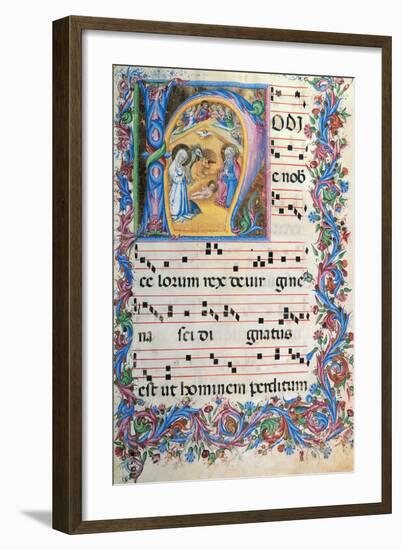 H ODI
e nob
ce lorum rex de vir gine
na sci di gnatus
est ut hominem perditum